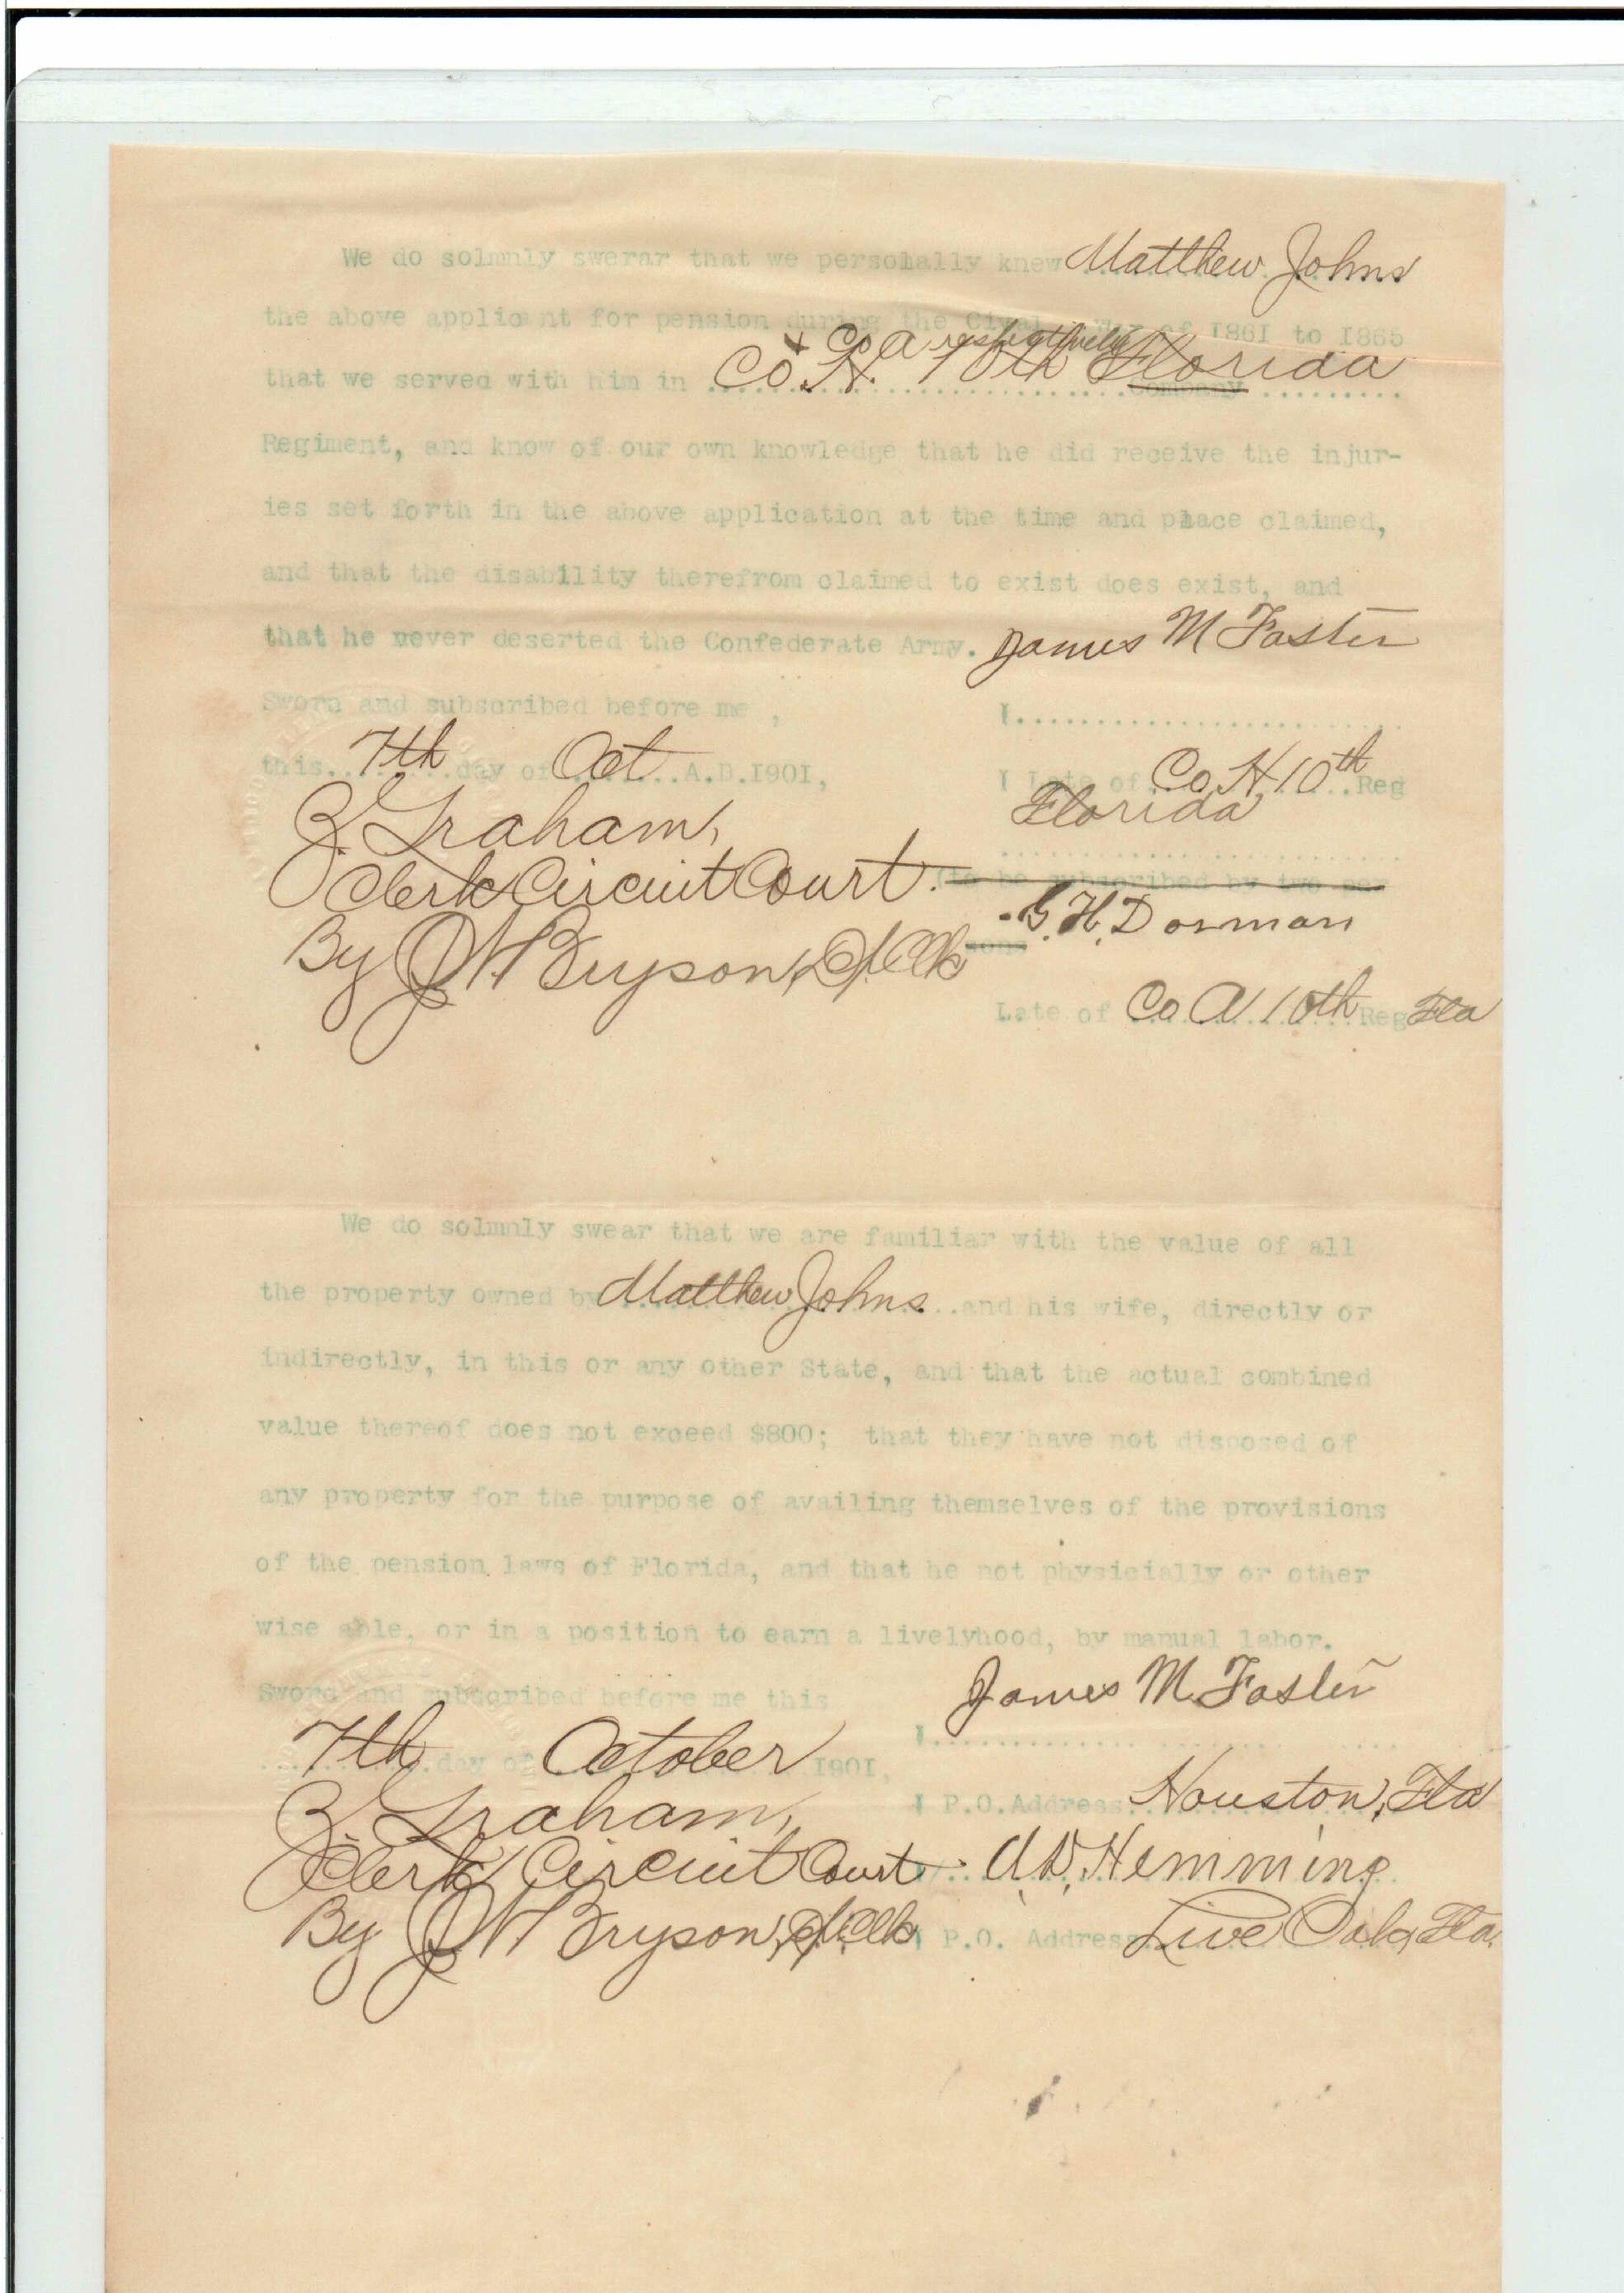 We do solmnly swerar that we personally knew Matthew Johns
the above applicant for pension during the Cival War of 1861 to 1865
& Co a respectively
that we served with him in Co. H. 10th Florida Company
Regiment, and know of our own knowledge that he did receive the injur-
ies set forth in the above application at the time and place claimed,
and that the disability therefrom claimed to exist does exist, and
that he never deserted the Confederate Army. James M Foster
Sworn and subscribed before me ,
this 7th day of Oct A.D.I90I,
Late of Co. H. 10th Reg
Florida
Z. Graham,
Clerk Circuit Court.
(to be subscribed by two per
sons
G. H. Dorman
By J N Bryson, D. Clk
Late of Co A 10th Reg Fla
We do solmnly swear that we are familiar with the value of all
the property owned by Matthew Johns and his wife, directly or
indirectly, in this or any other State, and that the actual combined
value thereof does not exceed $800; that they have not disposed of
any property for the purpose of availing themselves of the provisions
of the pension laws of Florida, and that he not physicially or other
wise able, or in a position to earn a livelyhood, by manual labor.
James M. Foster
Sword and subscribed before me this
7th day of October I90I,
Z. Graham,
P.O.Address Houston, Fla
Clerk Circuit Court
A. D. Hemming
By J N Bryson, D. Clk
P.O. Address Live Oak, Fla.